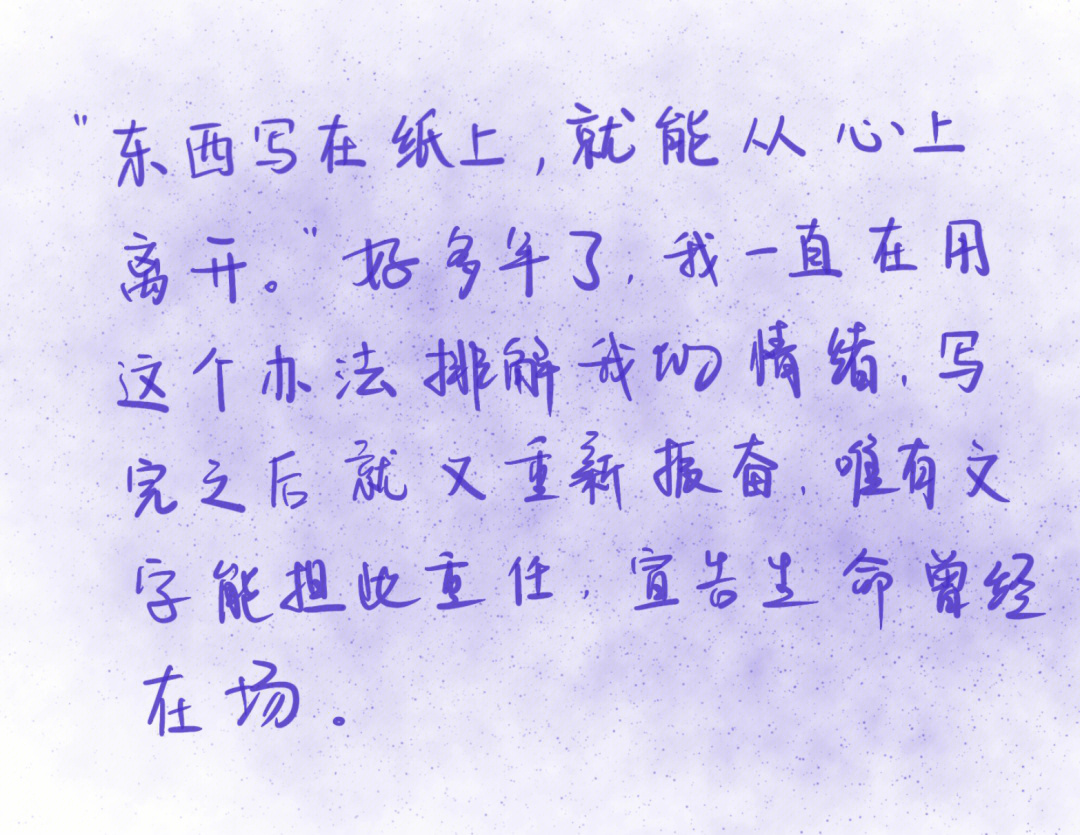 "东西写在纸上,就能从心上
离开。"好多年了,我一直在用
这个办法排解我的情绪,写
完之后就又重新振奋,唯有文
字能担此重任,宣告生命曾经
在场。